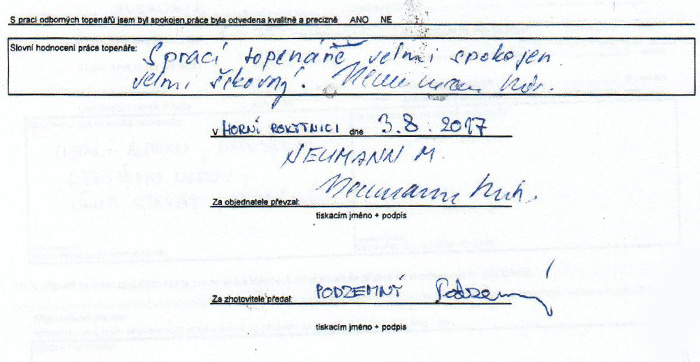 S prací odborných topenářů jsem byl spokojen,práce byla odvedena kvalitně a precizně ANO NE
Slovní hodnocení práce topenáře: S prací topenáře velmi spokojen.
velmi šikovný!
v HORNÍ ROKYTNICI dne 3.8.2017
NEUMANN M.
Za objednatele převzal: Neumann
tiskacím jméno + podpis
Za zhotovitele předal: PODZEMNÝ Podzemný
tiskacím jméno + podpis